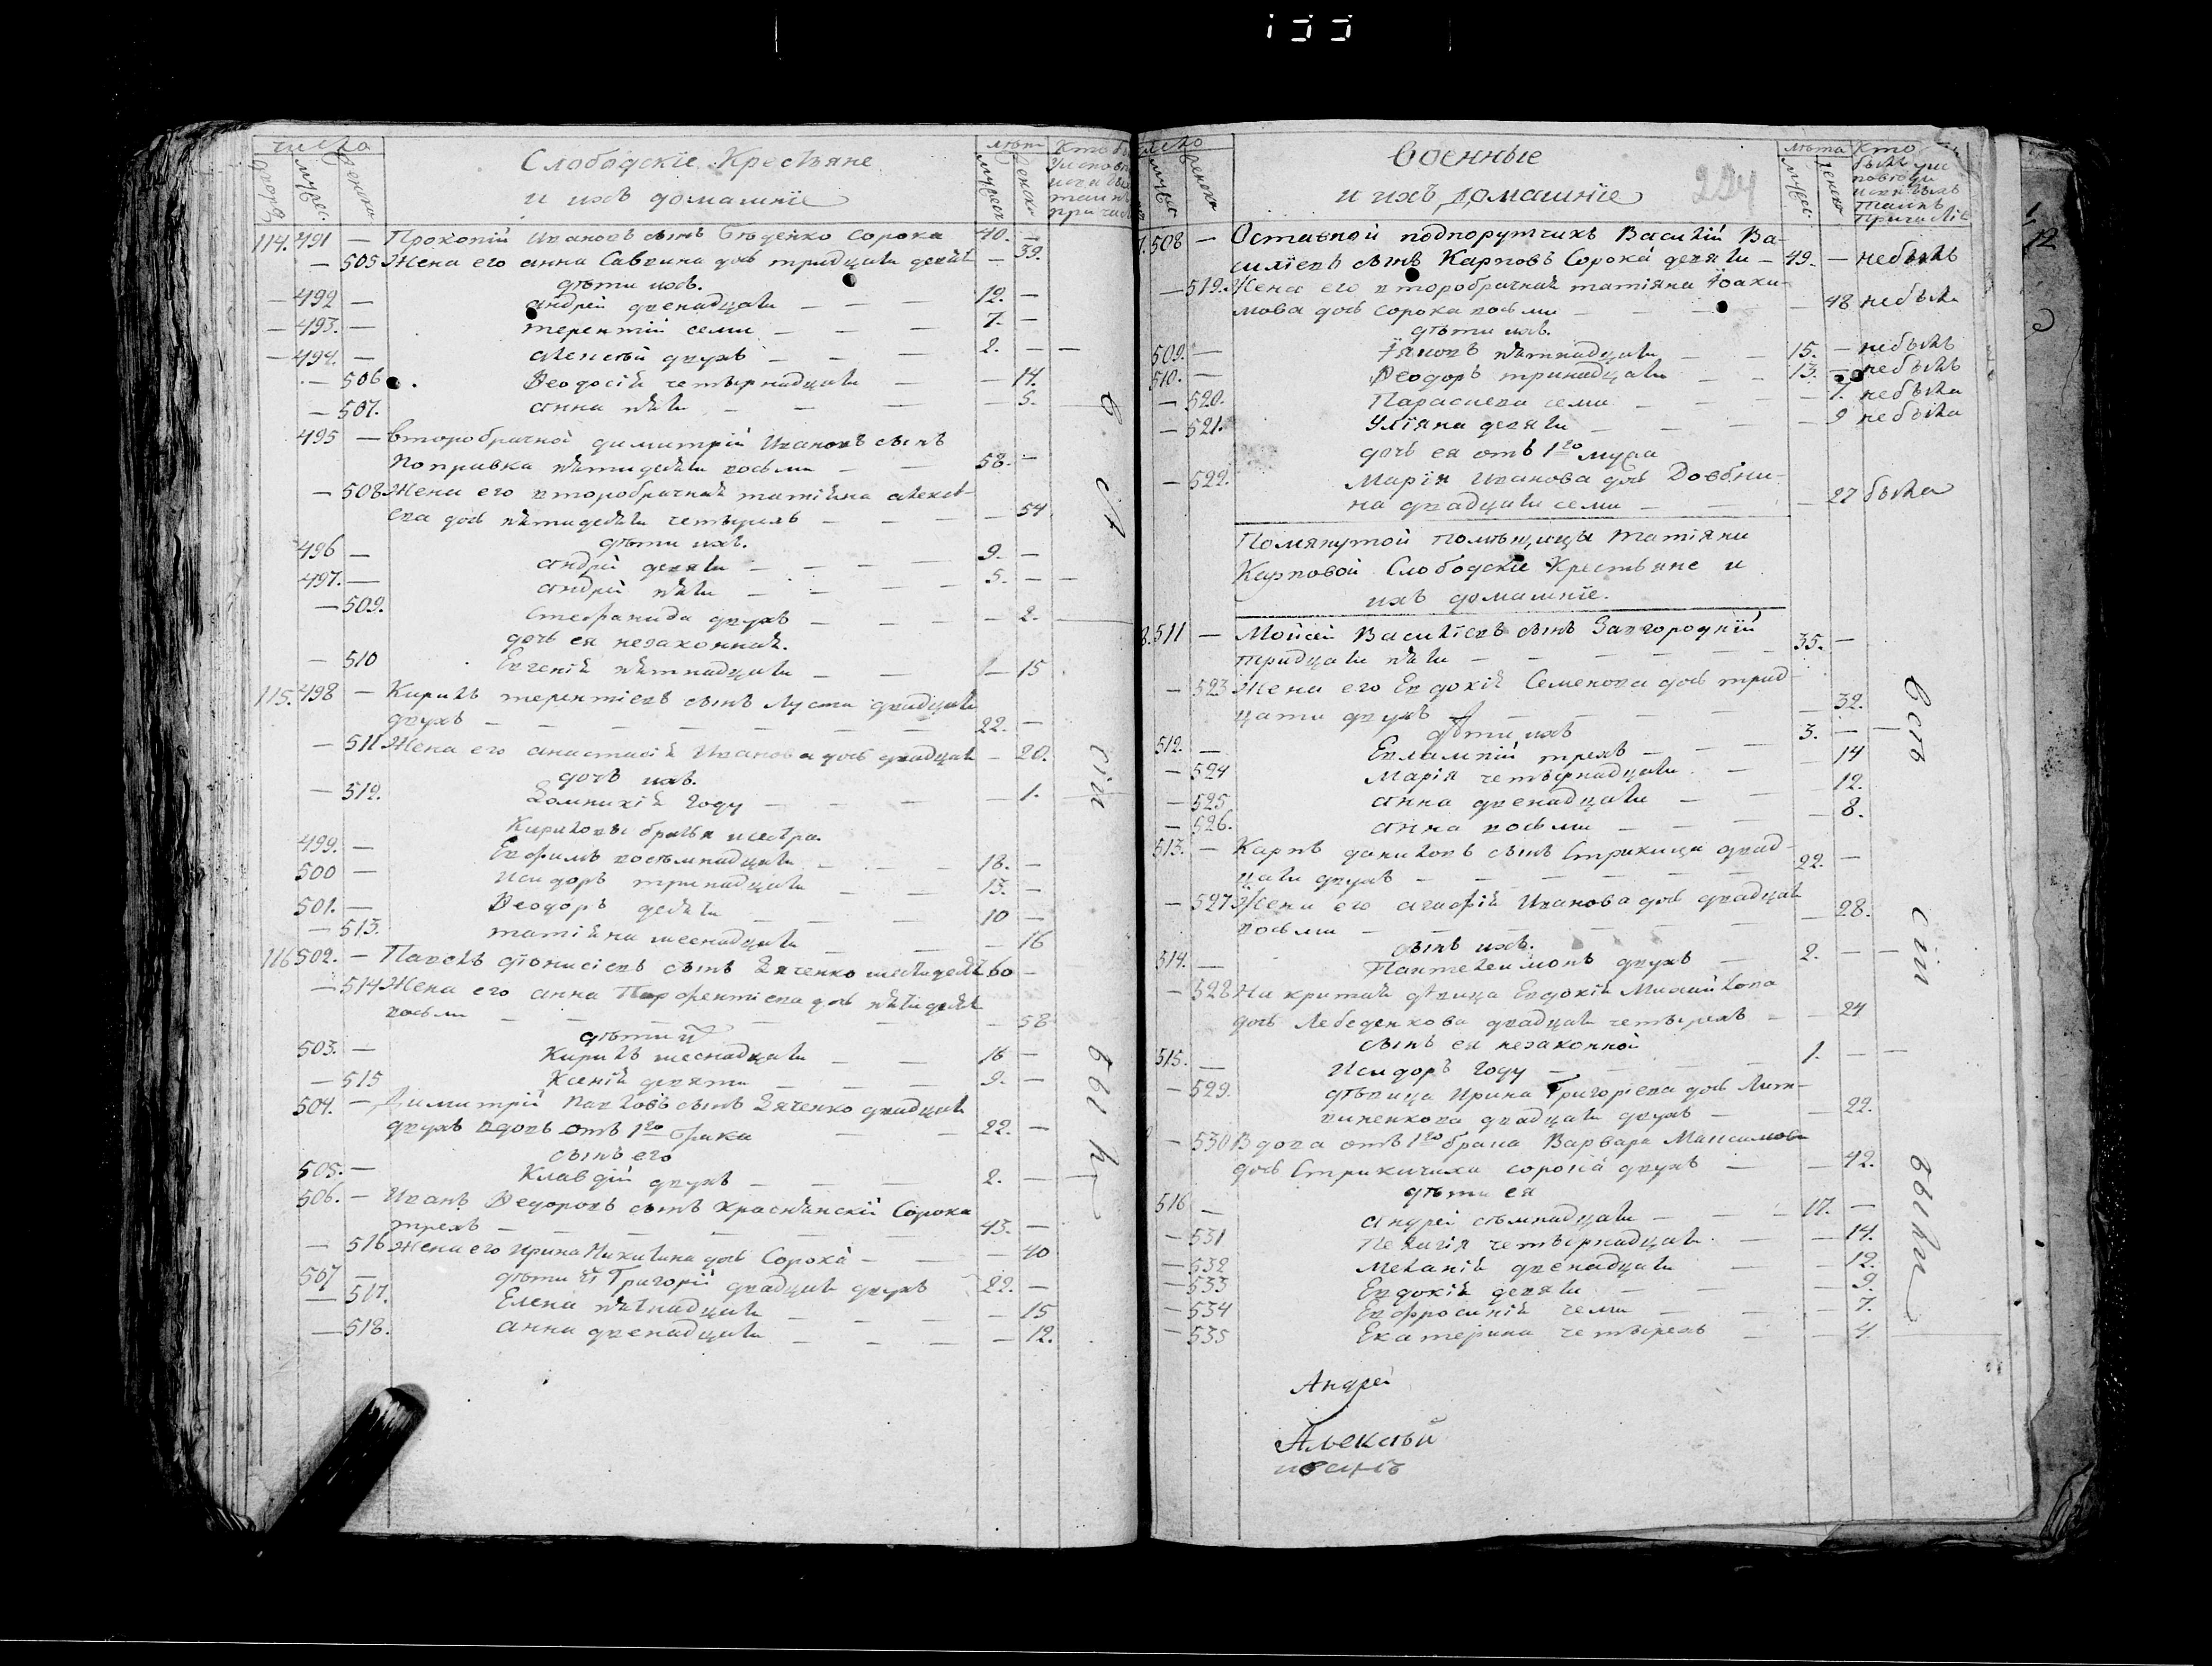 число
двор.
мужес.
женска
Слободскіе Крестьяне
и ихъ домашніе
лѣта
мужеск
женска
114. 491 — Прокопій Ивановъ сынъ Бѣденко сорока 40. —
— 505 Жена его анна Саввина дочь тридцати девяти — 39.
дѣти ихъ.
— 492 — андрей двенадцати — — — 12. —
— 493. — терентій семи — — — 7. —
— 494. — алексѣй двухъ — — — 2. — —
— 506 Ѳеодосія четырнадцати — — 14.
— 507. анна пяти — — — 5.
495 — второбрачной димитрій Ивановъ сынъ
Поправка пятидесяти восьми — — 58. —
— 508 Жена его второбрачная татіяна алексѣ-
ева дочь пятидесяти четырехъ — — — 54
дѣти ихъ.
496 — андрей девяти — — — — 9. —
497. — андрей пяти — — — — 5. — —
— 509. Стефанида двухъ — — — — 2.
дочь ея незаконная.
— 510 Евгенія пятнадцати — — — 15
115. 498 — Кирилъ терентіевъ сынъ Луста двадцати
двухъ — — — — — — — 22. —
— 511 Жена его анастасія Иванова дочь двадцати — 20.
дочь ихъ.
— 512. Домникія году — — — — 1.
Кириловы братья и сестра.
499. — Евфимъ восемнадцати — — — 18. —
500 — Исидоръ тринадцати — — 13. —
501. — Ѳеодоръ десяти — — — 10 —
— 513. татіяна шеснадцати — — — 16
116 502. — Павелъ діонисіевъ сынъ Дяченко шестидесяти 60 —
— 514 Жена его анна Парфентіева дочь пятидесяти
восьми — — — — — — 58.
дѣти ихъ
503. — Кирилъ шеснадцати — — 16 —
— 515 Ксенія девяти — — — 9. —
504. — Димитрій Павловъ сынъ Дяченко двадцати
двухъ вдовъ отъ 1го брака — — 22. —
сынъ его
505. — Клавдій двухъ — — — 2. — —
506. — Иванъ Ѳедоровъ сынъ Краснянскій Сорока
трехъ — — — — — 43. —
— 516 Жена его Ирина Никитина дочь Сорока — — 40
507 — дѣти ихъ Григорій двадцати двухъ 22. —
— 517. Елена пятнадцати — — — — 15
— 518. анна двенадцати — — — — 12.
всѣ
сіи
были
число
мужес
женска
Военные
и ихъ домашніе
224
лѣта
мужес.
женска
Кто
былъ
508 — Оставной подпорутчикъ Василій Ва-
силіевъ сынъ Карповъ Сорока девяти — 49. — небылъ
— 519. Жена его второбрачная татіяна Іоаки-
мова дочь сорока восьми — — — 48 небыла
дѣти ихъ.
509. — Іяковъ пятнадцати — — 15. — небылъ
510. — Ѳеодоръ тринадцати — — 13. — небылъ
— 520. Параскева семи — — — 7. небыла
— 521. Уліяна девяти — — — 9 небыла
дочь ея отъ 1го мужа
— 522. Марія Иванова дочь Довбни-
на двадцати семи — — — 27 была
Помянутой помѣщицы татіяни
Карповой Слободскіе Крестьяне и
ихъ домашніе.
511 — Мойсей Василіевъ сынъ Завгородній
тридцати пяти — — — — — 35. —
— 523 Жена его Евдокія Семенова дочь трид-
цати двухъ — — — — — 32.
дѣти ихъ
512. — Евлампій трехъ — — — 3. — —
— 524 Марія четырнадцати — — 14
— 525. анна двенадцати — — 12.
— 526. анна восьми — — — 8.
513. — Карпъ даниловъ сынъ Стрикица двад-
цати двухъ — — — — — 22. —
— 527 Жена его агафія Иванова дочь двадцати
восьми — — — — — — 28.
сынъ ихъ.
514. — Пантелеимонъ двухъ — 2. — —
— 528 Накритая дѣвица Евдокія Михайлова
дочь Лебеденкова двадцати четырехъ — — 24
сынъ ея незаконной
515. — Исидоръ году — — — 1. — —
— 529. дѣвица Ирина Григоріева дочь Лит-
виненкова двадцати двухъ — — 22.
— 530 Вдова отъ 1го брака Варвара Максимова
дочь Стрикичиха сорока двухъ — — 42.
дѣти ея
516 — андрей семнадцати — — 17. —
— 531 Пелагія четырнадцати. — — 14.
— 532 Меланія двенадцати — — 12.
— 533 Евдокія девяти — — — 9.
— 534 Евфросинія семи — — — 7.
— 535 Екатерина четырехъ — 4
всѣ
сіи
были
Андрей
Алексѣй